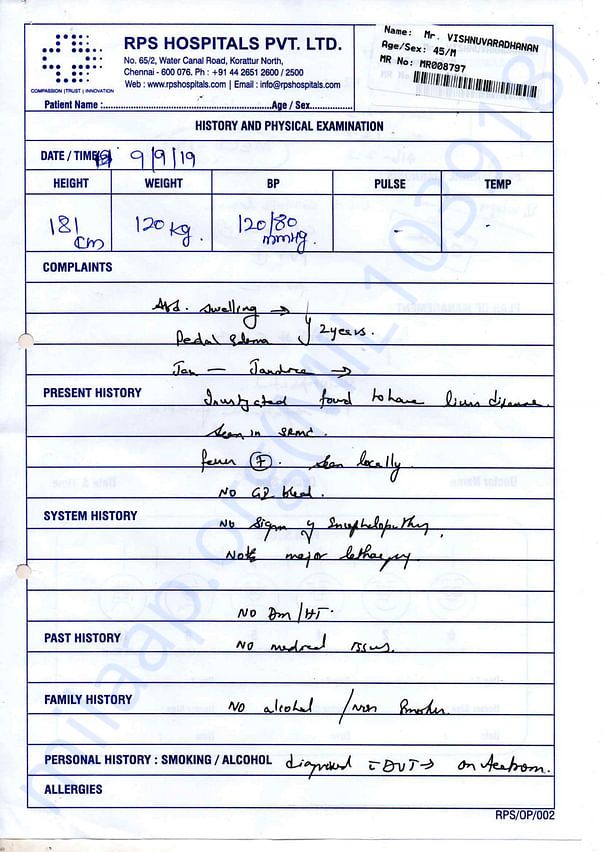 RPS HOSPITALS PVT. LTD.
No. 65/2, Water Canal Road, Korattur North,
Chennai - 600 076. Ph : +91 44 2651 2600 / 2500
Web : www.rpshospitals.com | Email : info@rpshospitals.com
COMPASSION | TRUST | INNOVATION
Name: Mr. VISHNUVARADHANAN
Age/Sex: 45/M
MR No: MR008797
Patient Name :..............................Age / Sex..............
HISTORY AND PHYSICAL EXAMINATION
DATE / TIME 9/9/19
HEIGHT WEIGHT BP PULSE TEMP
181 cm 120 kg. 120/80 mmHg. - -
COMPLAINTS
Abd. swelling → 2 years.
Pedal edema
Jan — Jaundice →
PRESENT HISTORY
Investigated found to have liver disease.
seen in SRMC.
fever F. seen locally
NO GI bleed.
SYSTEM HISTORY
No sign of encephalopathy.
Not major lethargy
NO Dm/HT.
PAST HISTORY
No medical issues.
FAMILY HISTORY
No alcohol / Non Smoker.
PERSONAL HISTORY : SMOKING / ALCOHOL diagnosed c̄ DVT → on Acetrom.
ALLERGIES
RPS/OP/002
milaap.org(MIL103918)